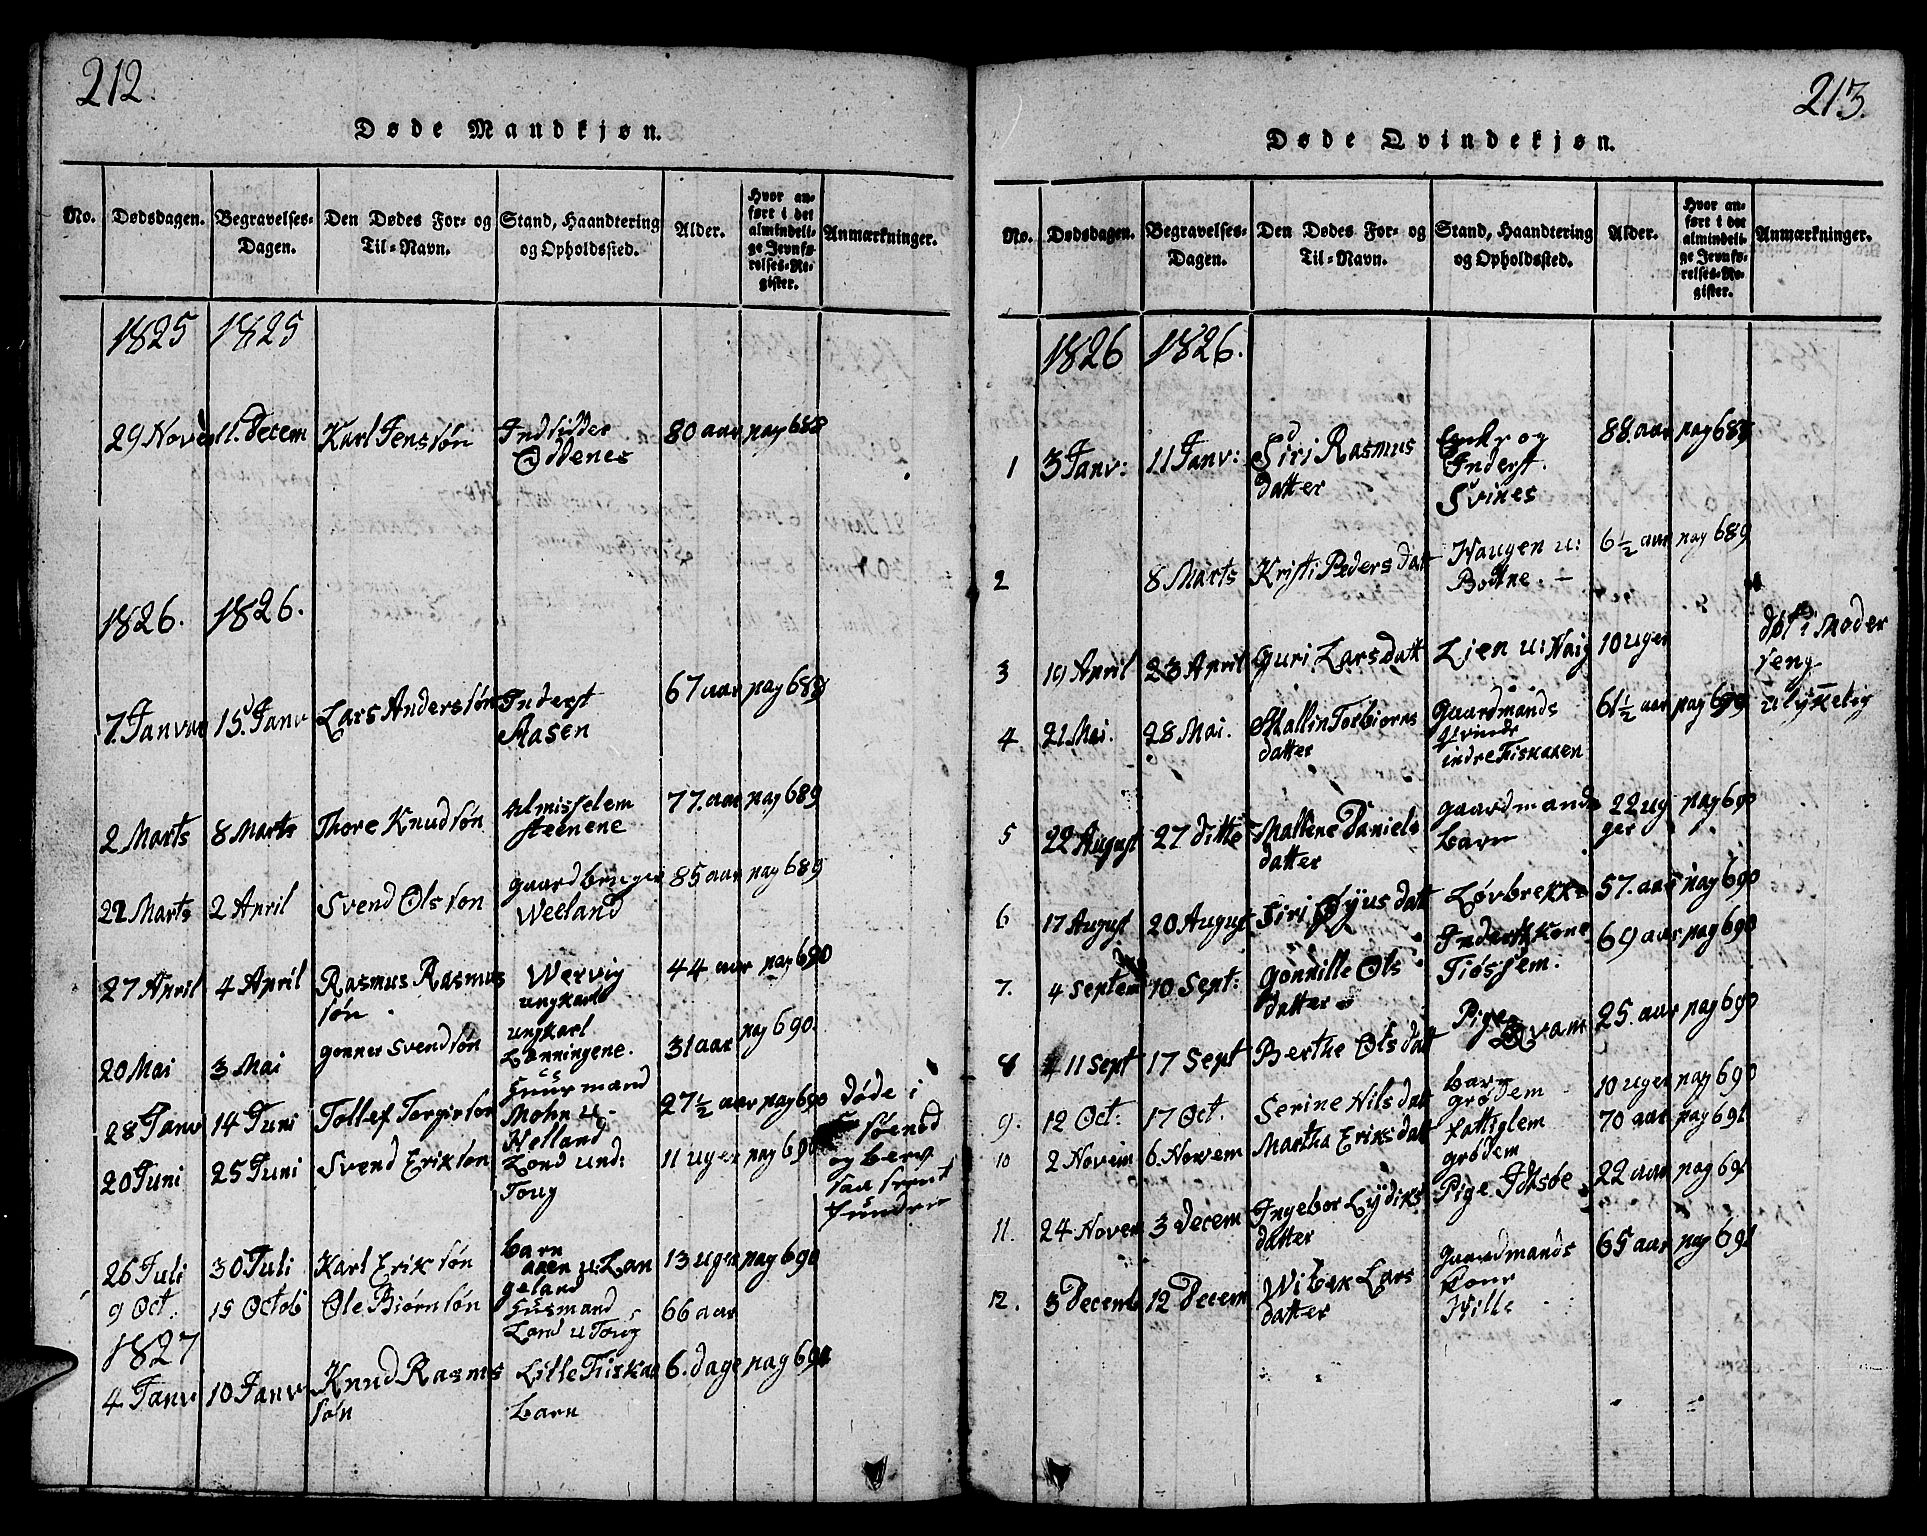 212.
Døde Mandkjøn.
No. Dødsdagen. Begravelses-Dagen. Den Dødes For- og Til-Navn. Stand, Haandtering og Opholdssted. Alder. Hvor anført i det almindelige Jevnførelses-Register. Anmærkninger.
1825 1825
29 Nove 11. Decem Karl Jenssøn Indsidder Odenes 80 aar pag 688
1826. 1826.
7. Januar 15. Janv Lars Anderssøn Inderst Aasen 67 aar pag 688
2 Marts 8 Marts Thore Knudsøn Almisselem steenene 77. aar pag 689
22 Marts 2 April Svend Olssøn gaardbruger Weeland 85 aar pag 689
27 April 4 April Rasmus Rasmus søn Wervig ungkarl 44 aar pag 690
20 Mai 3 Mai Gonner Svendsøn ungkarl Lanningene. 31 aar pag 690.
28 Janv 14 Juni Tollef Torgirsøn Huurmand Mohn u. Helland 27½ aar pag 690 døde i søenød og berv saa sent funden
20 Juni 25 Juni Svend Eriksøn Lond und: Toug 11 uger pag 690
26 Juli 30 Juli Karl Eriksøn barn aaen u: Lan geland 13 uger pag 690
9 Oct. 15 Octob Ole Biørnsøn Husmand Lond u Toug 66 aar
1827
4 Janv 10 Janv Knud Rasmus søn Lille Fiskaa barn 6. dage pag 690
213.
Døde Qvindekjøn.
No. Dødsdagen. Begravelses-Dagen. Den Dødes For- og Til-Navn. Stand, Haandtering og Opholdssted. Alder. Hvor anført i det almindelige Jevnførelses-Register. Anmærkninger.
1826 1826.
1 3 Janv: 11 Janv: Siri Rasmus datter Enke og Inderst. Svines 88 aar pag 689
2 8 Marts Kristi Peders datt Haugen u: Bodne. 6½ aar pag 689
3 19 April 23 April Guri Larsdatt Lien u: Haig 10 uger død i Moder seng
4. 21 Mai. 28 Mai. Mallin Torbiørns datter Gaardmands qvinde indre Fiskaaen 61½ aar pag 690 ulykkelig
5 22 August 27 ditto Mallene Daniels datter gaardmands barn 22 ug ger pag 690
6 17 August 20 August Siri Øyus datt Løvbrekke 57. aar pag 690
7. 4 Septem 10 Sept: Gonnille Ols datter Inderst kone Tiøssem. 69 aar pag 690
8 11 Sept 17 Sept Berthe Ols datt Pige Qvam 25. aar pag 690
9. 12 Oct: 17 Oct. Serine Nilsdatt barn grødem 10 uger pag 690
10 2 Novem 6. Novem Martha Eriksdatt fattiglem grødem 70 aar pag 691
11. 24 Novem 3 Decem Ingebor Lydiks datter Pige Idsøe 22 aar pag 691
12. 3 Decemb 12 Decem Wibek Lars datter Gaardmands kone Hille 65 aar pag 691